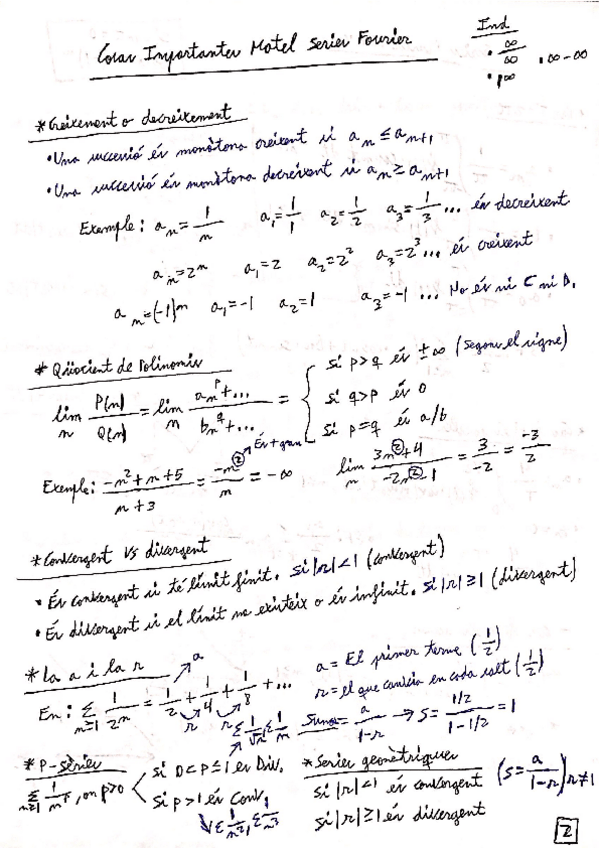 Coses Importantes Motel Series Fourier
Ind
• ∞/∞ • ∞-∞
• 1^∞
* Creixement o decreixement
• Una successió és monòtona creixent si a_n ≤ a_n+1
• Una successió és monòtona decreixent si a_n ≥ a_n+1
Exemple: a_n = 1/n a_1 = 1/1 a_2 = 1/2 a_3 = 1/3 ... és decreixent
a_n = 2^n a_1 = 2 a_2 = 2^2 a_3 = 2^3 ... és creixent
a_n = (-1)^n a_1 = -1 a_2 = 1 a_3 = -1 ... No és ni C ni D.
* Qüocient de Polinomis
lim n P(n)/Q(n) = lim n an^p+.../bn^q+... =
si p>q és ±∞ (segons el signe)
si q>p és 0
si p=q és a/b
És + gran
Exemple: -n^2+n+5/n+3 = -n^2/n = -∞ lim n 3n^2+4/-2n^2-1 = 3/-2 = -3/2
* Convergent Vs divergent
• És convergent si té límit finit. si |r|<1 (convergent)
• És divergent si el límit no existeix o és infinit. si |r|≥1 (divergent)
* La a i la r
a
a = El primer terme (1/2)
r = el que canvia en cada salt (1/2)
En: Σ n=1 1/2^n = 1/2 + 1/4 + 1/8 + ...
r r
Suma = a/1-r → S = 1/2/1-1/2 = 1
Σ 1/√n, Σ 1/n
* P-sèrie
Σ n≥1 1/n^p, on p>0
si 0<p≤1 és Div.
si p>1 és Conv.
Σ 1/n^2, Σ 1/n^3
* Series geomètriques
si |r|<1 és convergent (S = a/1-r) r≠1
si |r|≥1 és divergent
2